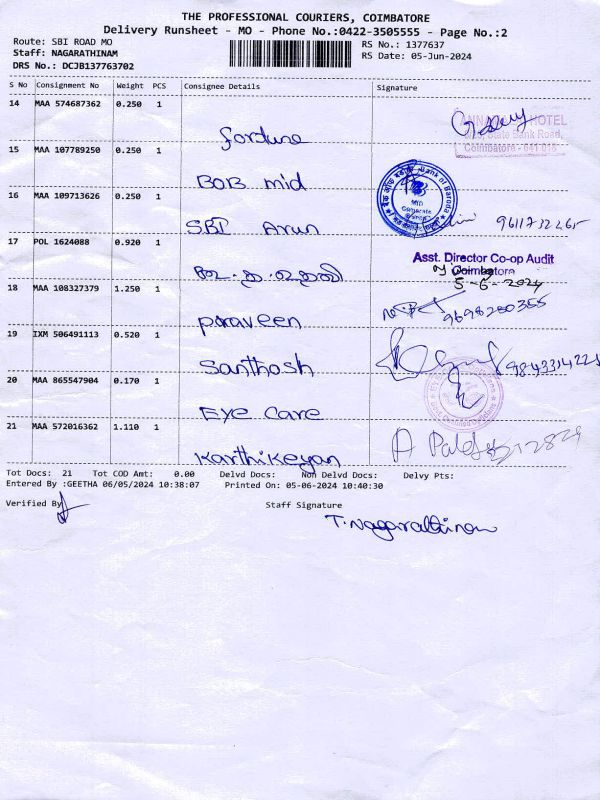 THE PROFESSIONAL COURIERS, COIMBATORE
Delivery Runsheet - MO - Phone No.:0422-3505555 - Page No.:2
Route: SBI ROAD MO
RS No.: 1377637
Staff: NAGARATHINAM
RS Date: 05-Jun-2024
DRS No.: DCJB137763702
S No Consignment No Weight PCS Consignee Details Signature
14 MAA 574687362 0.250 1 fortune
HOTEL
State Bank Road,
Coimbatore - 641 018
15 MAA 107789250 0.250 1 BOB mid
Bank of Baroda
MID
Corporate
16 MAA 109713626 0.250 1 SBI Arun
9611732265
17 POL 1624088 0.920 1
Asst. Director Co-op Audit
Coimbatore
5-6-2024
18 MAA 108327379 1.250 1 praveen
9698280355
19 IXM 506491113 0.520 1 Santhosh
20 MAA 865547904 0.170 1 Eye Care
21 MAA 572016362 1.110 1 Karthikeyan
Tot Docs: 21 Tot COD Amt: 0.00 Delvd Docs: Non Delvd Docs: Delvy Pts:
Entered By :GEETHA 06/05/2024 10:38:07 Printed On: 05-06-2024 10:40:30
Verified By
Staff Signature
T. Nagarathinam